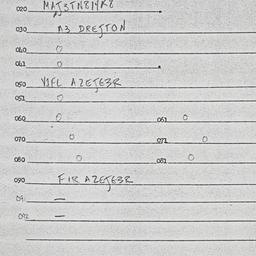 020 MAJ3TN814R8
030 n3 DREJTON
040 0
041 0
050 VJFL AZEJG3R
051 0
060 0 061 0
070 0 071 0
080 0 081 0
090 FIR AZEJG3R
091 —
092 —